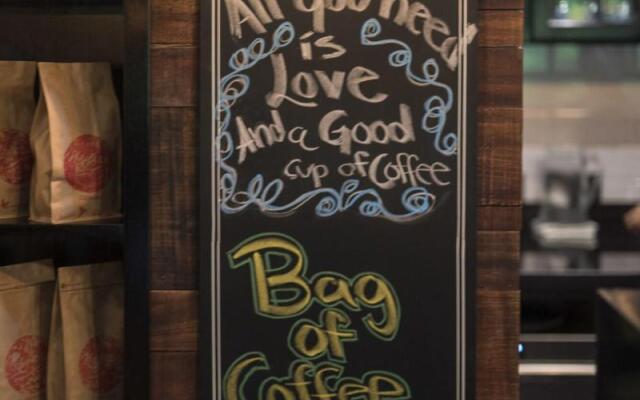 All you need
is
Love
And a Good
cup of Coffee
Bag
of
Coffee